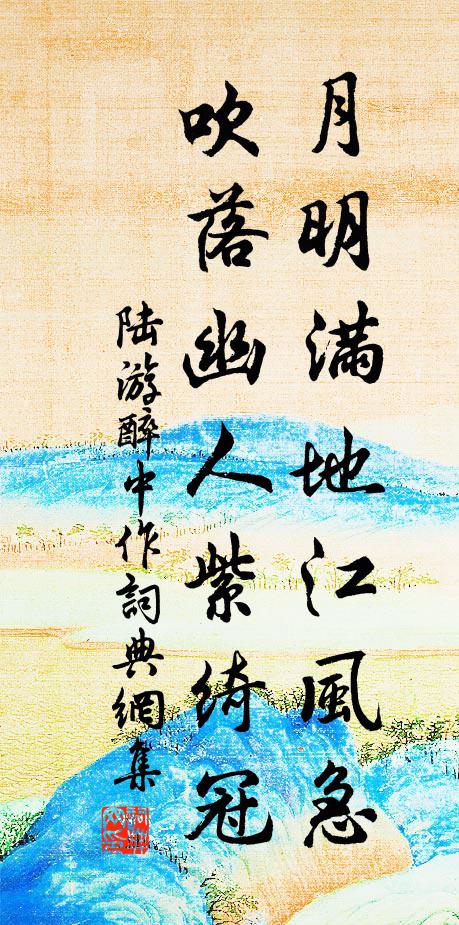 月明滿地江風急
吹落幽人紫綺冠
陸游醉中作詞典網集